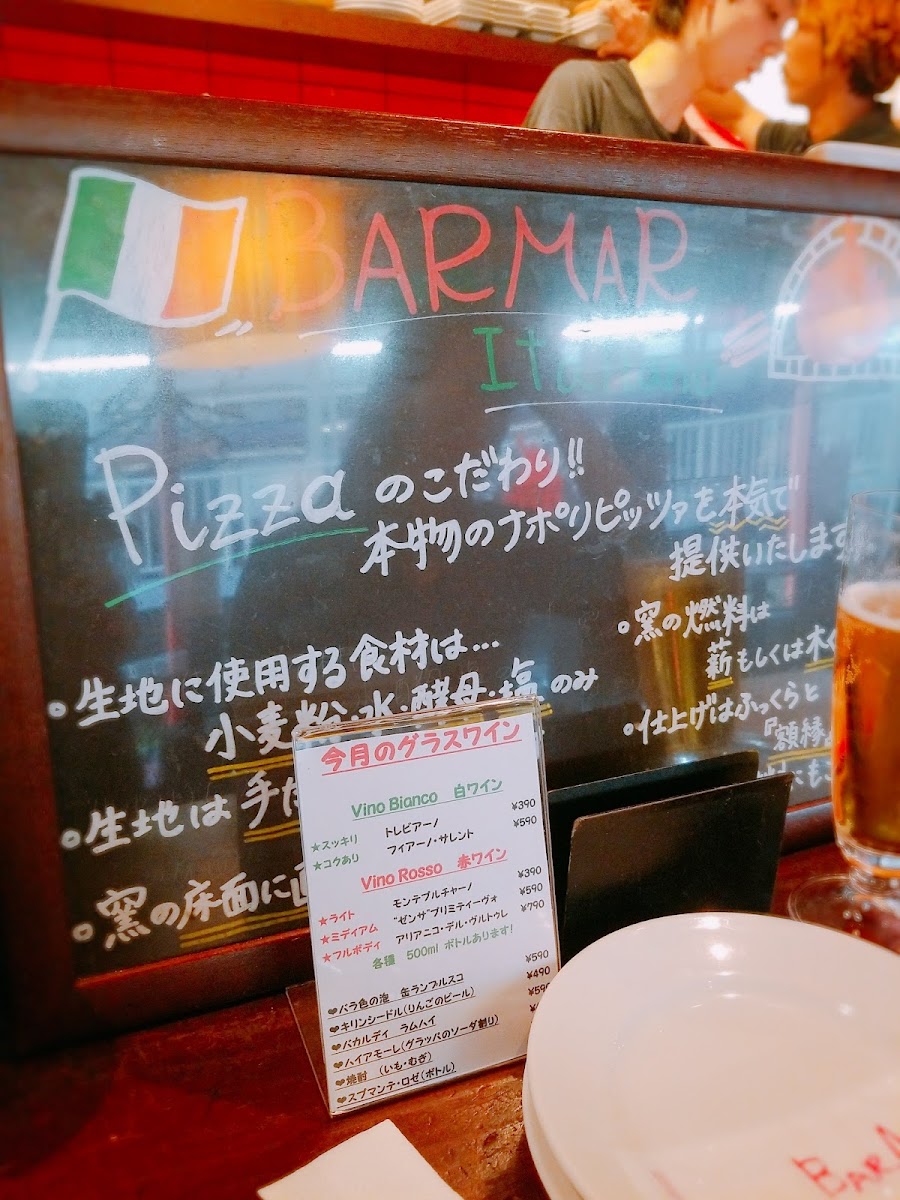 BARMAR
Pizza のこだわり!!
本物のナポリピッツァを本気で
提供いたします
・生地に使用する食材は...
小麦粉・水・酵母・塩のみ
・生地は手
・窯の床面に
・窯の燃料は
薪もしくは木
・仕上げはふっくらと
『額縁
今月のグラスワイン
Vino Bianco 白ワイン
★スッキリ トレビアーノ ¥390
★コクあり フィアーノ・サレント ¥590
Vino Rosso 赤ワイン
★ライト モンテプルチャーノ ¥390
★ミディアム "ゼンサ"プリミティーヴォ ¥590
★フルボディ アリアニコ・デル・ヴルトゥレ ¥790
各種 500ml ボトルあります!
❤バラ色の泡 缶ランブルスコ ¥590
❤キリンシードル(りんごのビール) ¥490
❤バカルディ ラムハイ ¥590
❤ハイアモーレ(グラッパのソーダ割り)
❤焼酎 (いも・むぎ)
❤スプマンテ・ロゼ(ボトル)
BAR